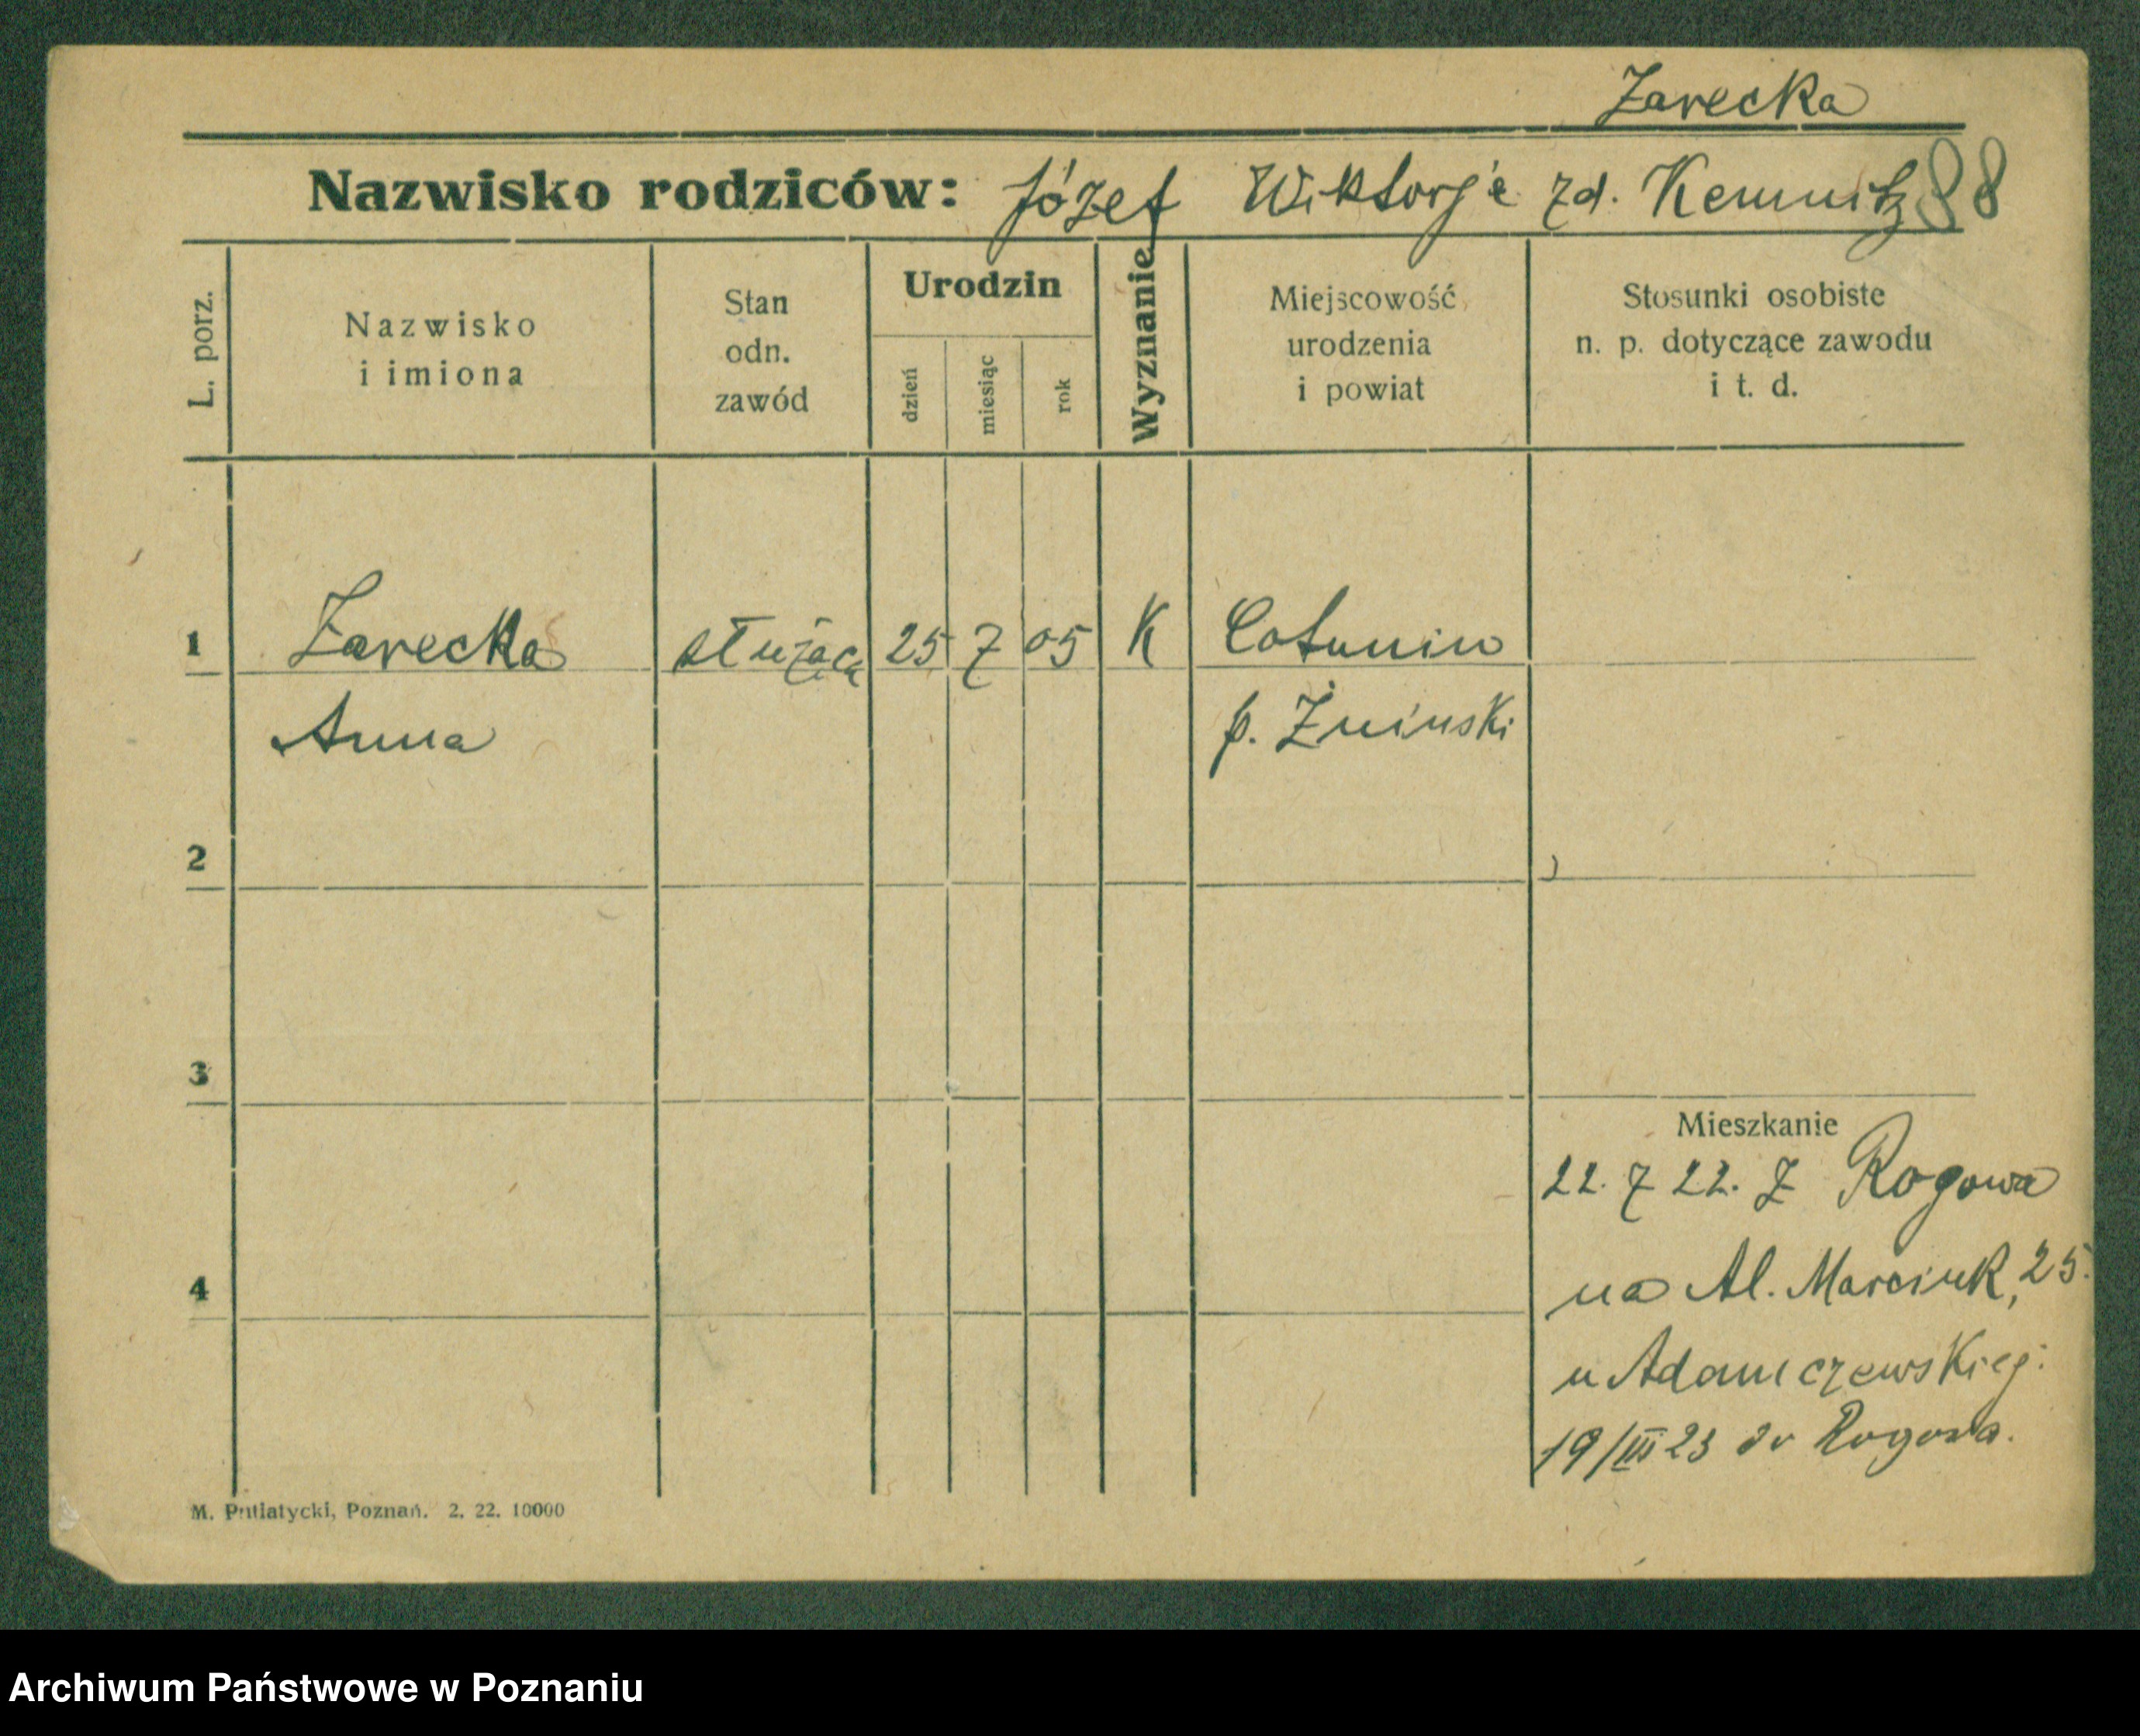 Zarecka
Nazwisko rodziców: Józef Wiktorje zd. Kemnitz 88
L. porz.
Nazwisko
i imiona
Stan
odn.
zawód
Urodzin
dzień
miesiąc
rok
Wyznanie
Miejscowość
urodzenia
i powiat
Stosunki osobiste
n. p. dotyczące zawodu
i t. d.
1 Zarecka służąca 25 7 05 K Cotunin
Anna p. Żninski
2
3
Mieszkanie
22. 7 22. Z Rogowa
na Al. Marcink, 25.
4
u Adamczewskieg.
19/III 23 do Rogowa.
M. Putiatycki, Poznań. 2. 22. 10000
Archiwum Państwowe w Poznaniu